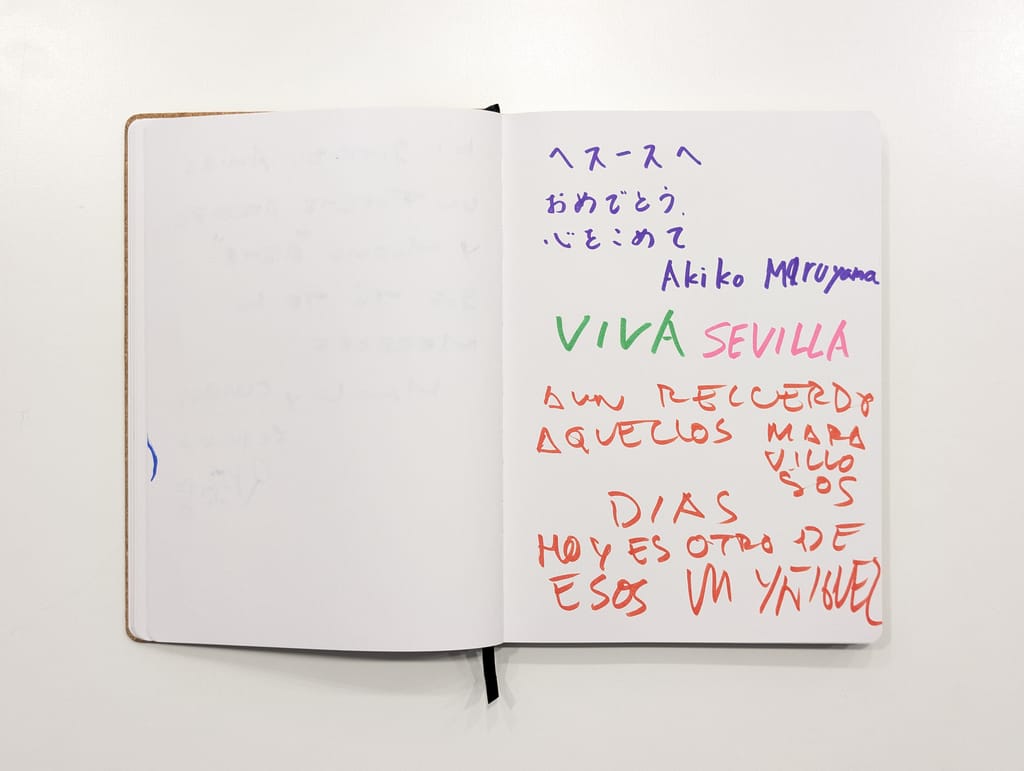 ヘスースへ
おめでとう.
心をこめて
Akiko Maruyama
VIVA SEVILLA
AUN RECUERDO
AQUELLOS MARA
VILLO
SOS
DIAS
HOY ES OTRO DE
ESOS